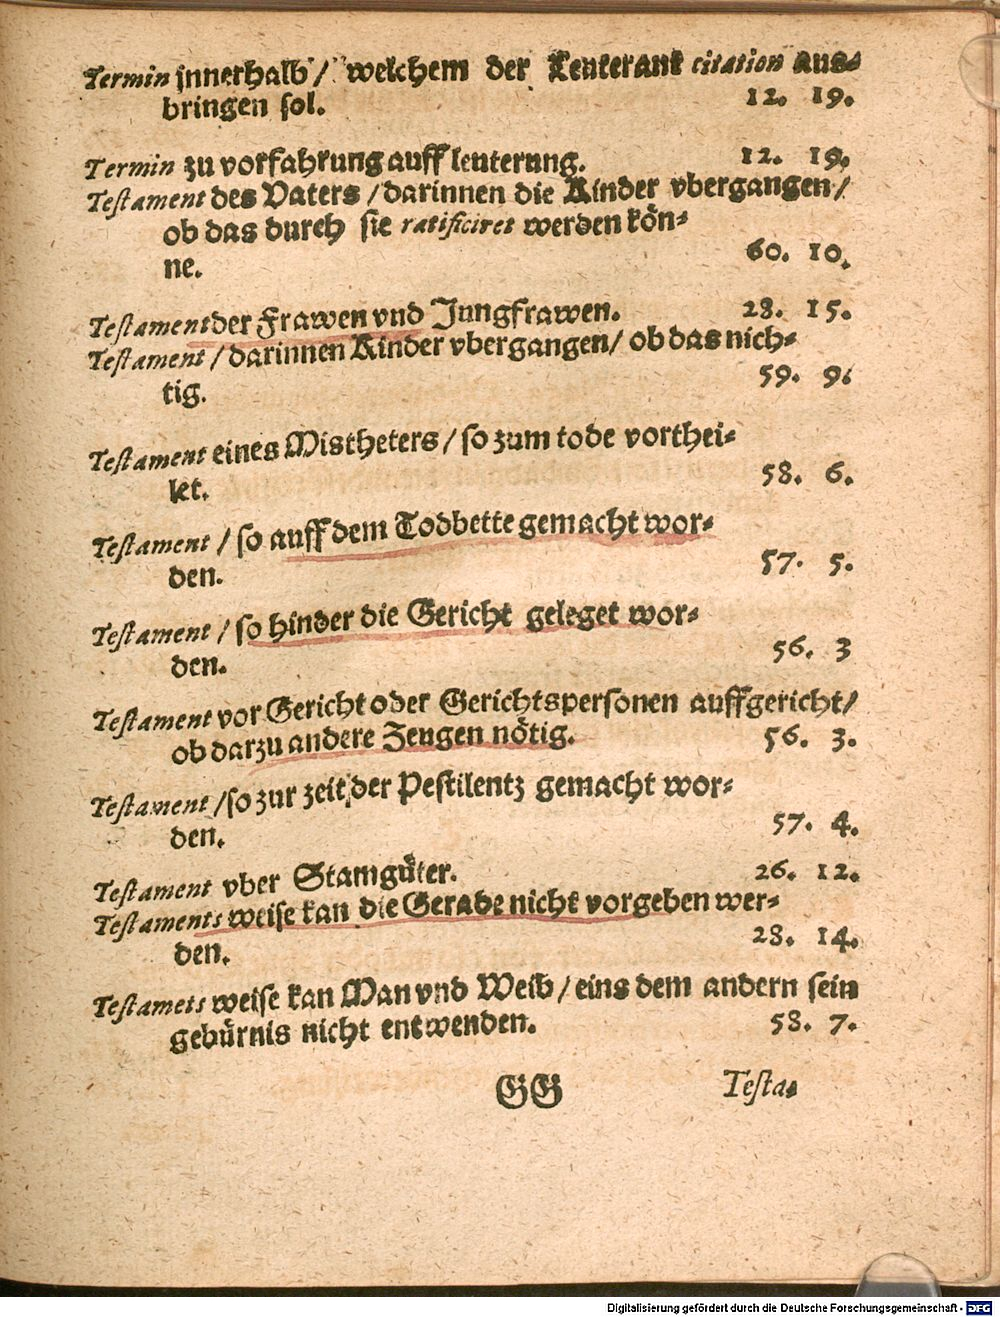 Termin jnnerhalb / welchem der Leuterant citation aus⸗
bringen sol. 12. 19.
Termin zu vorfahrung auff leuterung. 12. 19.
Testament des Vaters / darinnen die Kinder vbergangen /
ob das durch sie ratificiret werden kön⸗
ne. 60. 10.
Testament der Frawen vnd Jungfrawen. 28. 15.
Testament / darinnen Kinder vbergangen / ob das nich⸗
tig. 59. 9.
Testament eines Mistheters / so zum tode vorthei⸗
let. 58. 6.
Testament / so auff dem Todbette gemacht wor⸗
den. 57. 5.
Testament / so hinder die Gericht geleget wor⸗
den. 56. 3
Testament vor Gericht oder Gerichtspersonen auffgericht /
ob darzu andere Zeugen nötig. 56. 3.
Testament / so zur zeit der Pestilentz gemacht wor⸗
den. 57. 4.
Testament vber Stamgüter. 26. 12.
Testaments weise kan die Gerade nicht vorgeben wer⸗
den. 28. 14.
Testamets weise kan Man vnd Weib / eins dem andern sein
gebürnis nicht entwenden. 58. 7.
GG Testa⸗
Digitalisierung gefördert durch die Deutsche Forschungsgemeinschaft - DFG